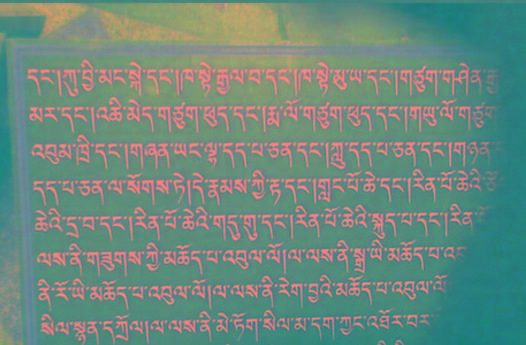 དང་།ཀུ་བྱི་མང་སྐེ་དང་།ཁ་སྟེ་རྒྱལ་བ་དང་།ཁ་སྟེ་མུ་ཡ་དང་།གཙུག་གཤེན་རྒྱ
མར་དང་།འཆི་མེད་གཙུག་ཕུད་དང་།རྨ་ལོ་གཙུག་ཕུད་དང་།གཡུ་ལོ་གཙུག
འབུམ་ཁྲི་དང་།གཞན་ཡང་ལྷ་དད་པ་ཅན་དང་།ཀླུ་དད་པ་ཅན་དང་།གཉན
དད་པ་ཅན་ལ་སོགས་ཏེ།དེ་རྣམས་ཀྱི་རྟ་དང་།གླང་པོ་ཆེ་དང་།རིན་པོ་ཆེའི
ཆེའི་དྲ་བ་དང་།རིན་པོ་ཆེའི་གདུ་གུ་དང་།རིན་པོ་ཆེའི་སྐུད་པ་དང་།རིན
ལས་ནི་གཟུགས་ཀྱི་མཆོད་པ་འབུལ་ལོ།ལ་ལས་ནི་སྒྲ་ཡི་མཆོད་པ་འབ
ནི་རོ་ཡི་མཆོད་པ་འབུལ་ལོ།ལ་ལས་ནི་རེག་བྱའི་མཆོད་པ་འབུལ་ལོ
སིལ་སྙན་དཀྲོལ།ལ་ལས་ནི་མེ་ཏོག་སིལ་མ་དག་ཀྱང་འཐོར་བར